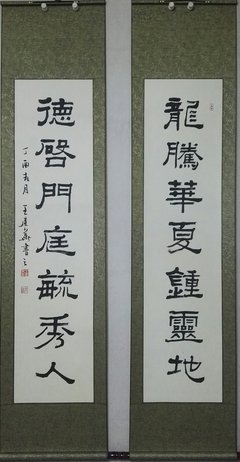 龍騰華夏鍾靈地
德啓門庭毓秀人
丁酉春月 王延喜書之